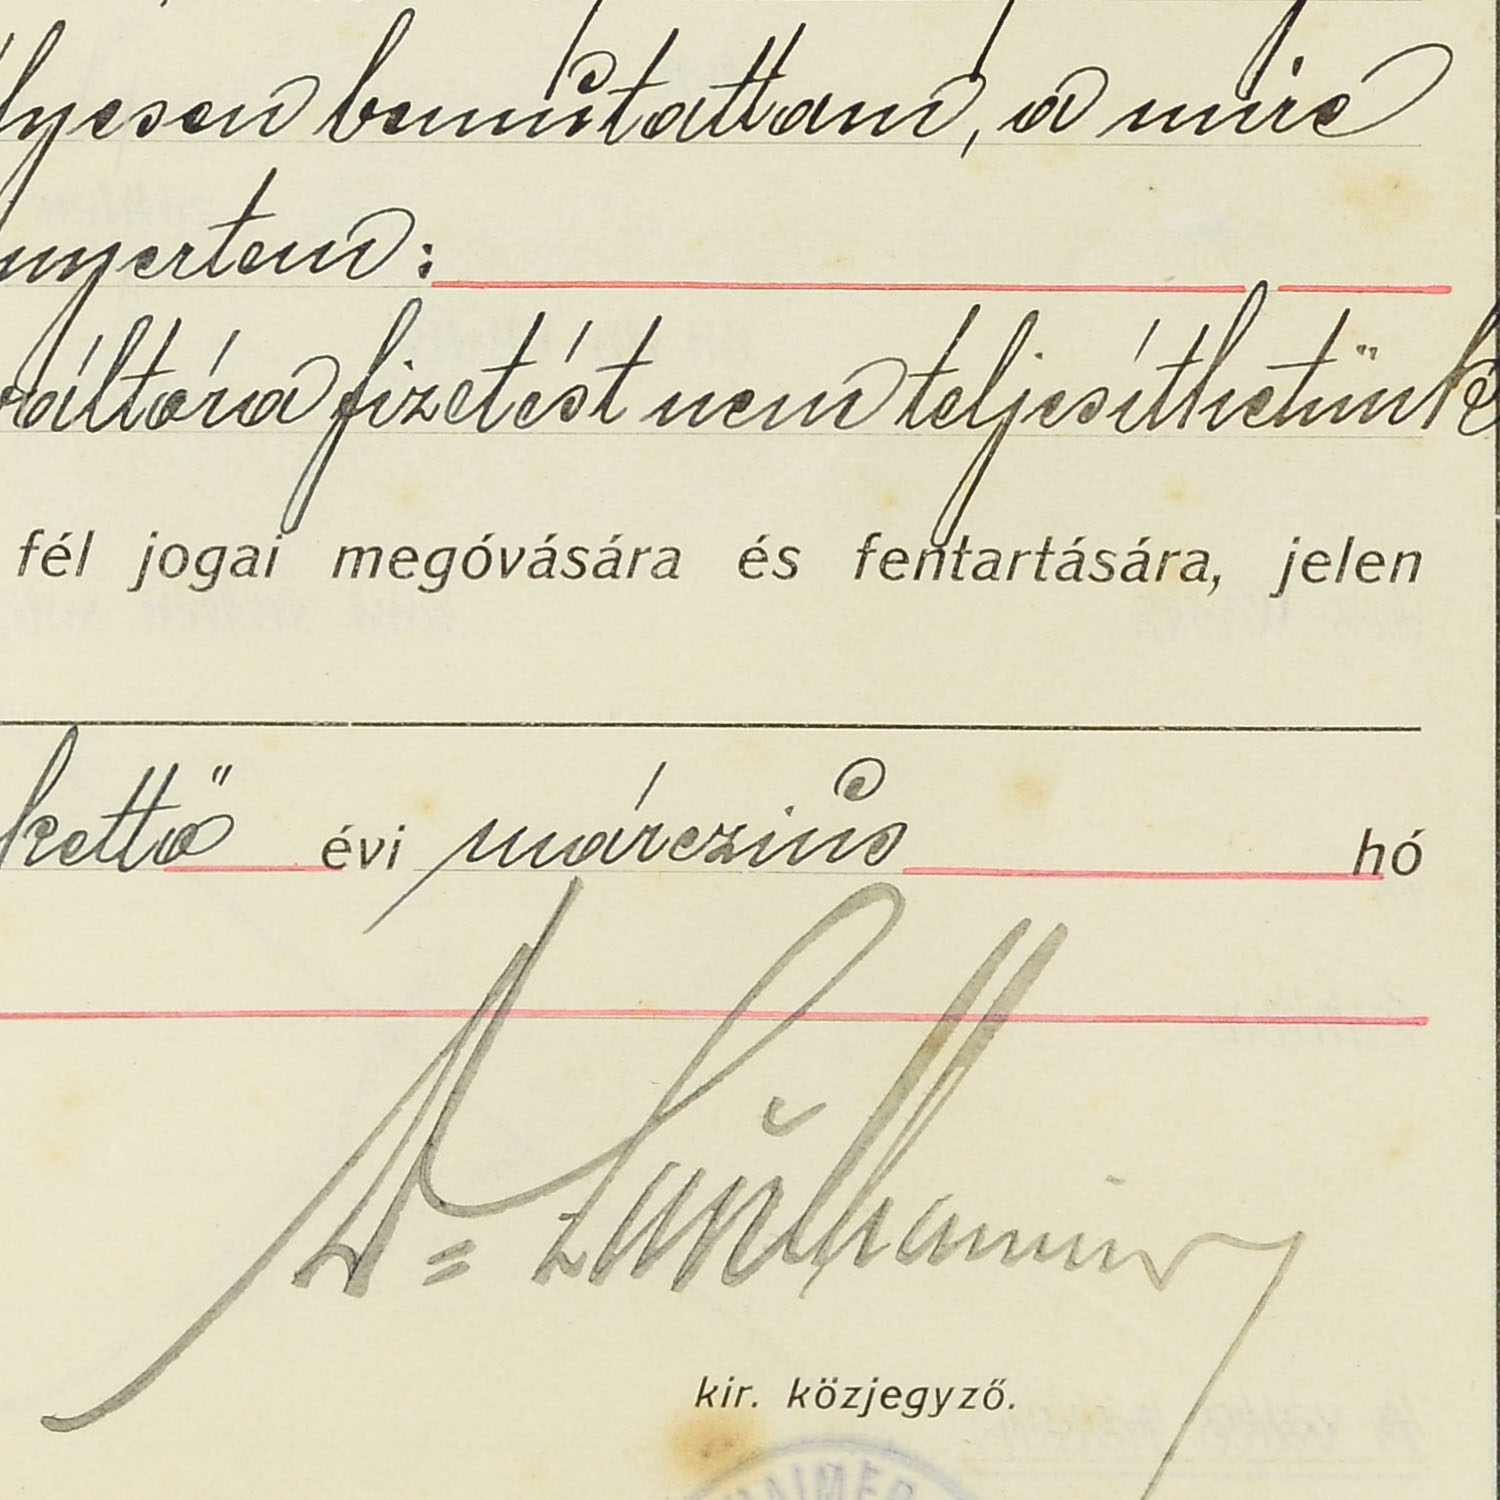 lyesen bemutattam, a mire
nyertem:
váltóra fizetést nem teljesíthetünk
fél jogai megóvására és fentartására, jelen
kettő évi márczius hó
Dr
kir. közjegyző.